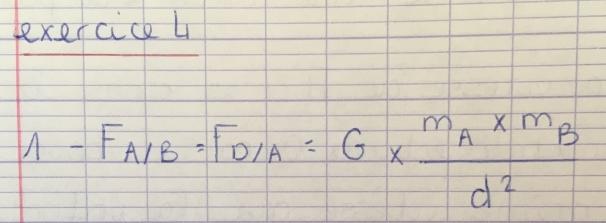 exercice 4
1 - F A/B = F D/A = G x m A x m B / d²